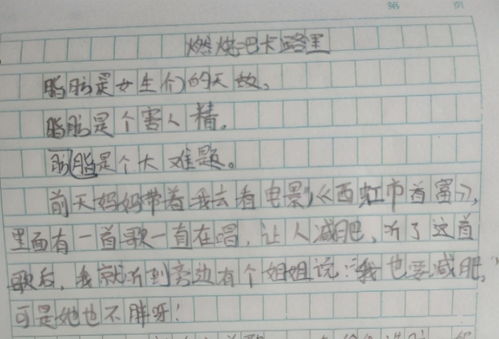 燃烧吧卡路里
脂肪是女生们的天敌。
脂肪是个害人精。
肪脂是个大难题。
前天妈妈带着我去看电影《西虹市首富》,
里面有一首歌一直在唱,让人减肥,听了这首
歌后,我就听到旁边有个姐姐说:“我也要减肥,”
可是她也不胖呀!